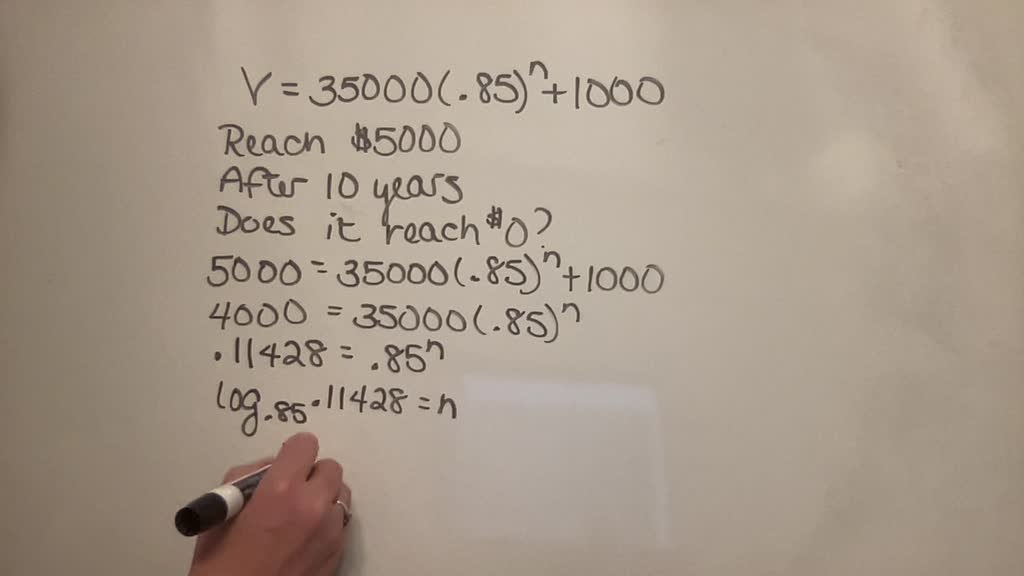 V = 35000(.85)ⁿ+1000
Reach $5000
After 10 years
Does it reach $0?
5000 = 35000(.85)ⁿ+1000
4000 = 35000(.85)ⁿ
.11428 = .85ⁿ
log.85 .11428 = n